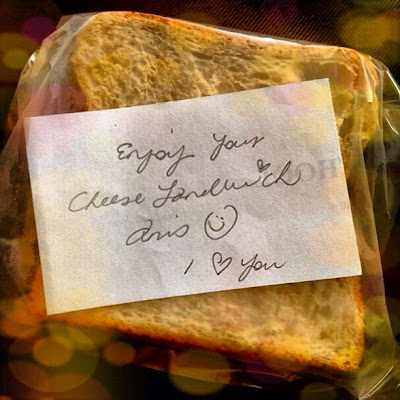 Enjoy Your
Cheese Sandwich
Anis
I You